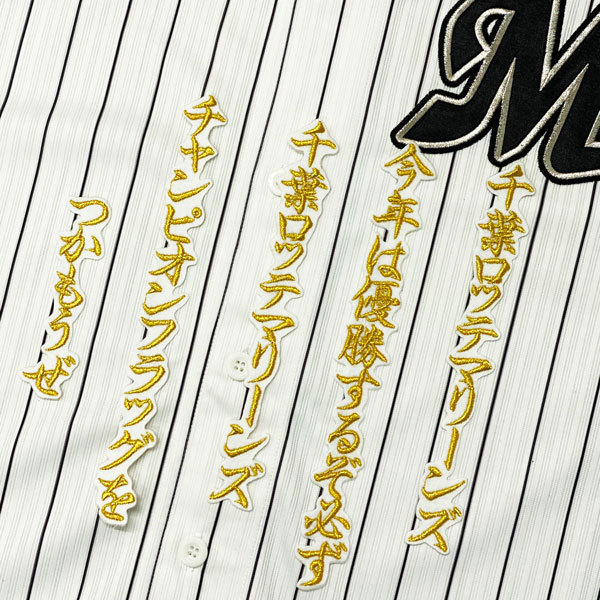 千葉ロッテマリーンズ
今年は優勝するぞ必ず
千葉ロッテマリーンズ
チャンピオンフラッグを
つかもうぜ
M